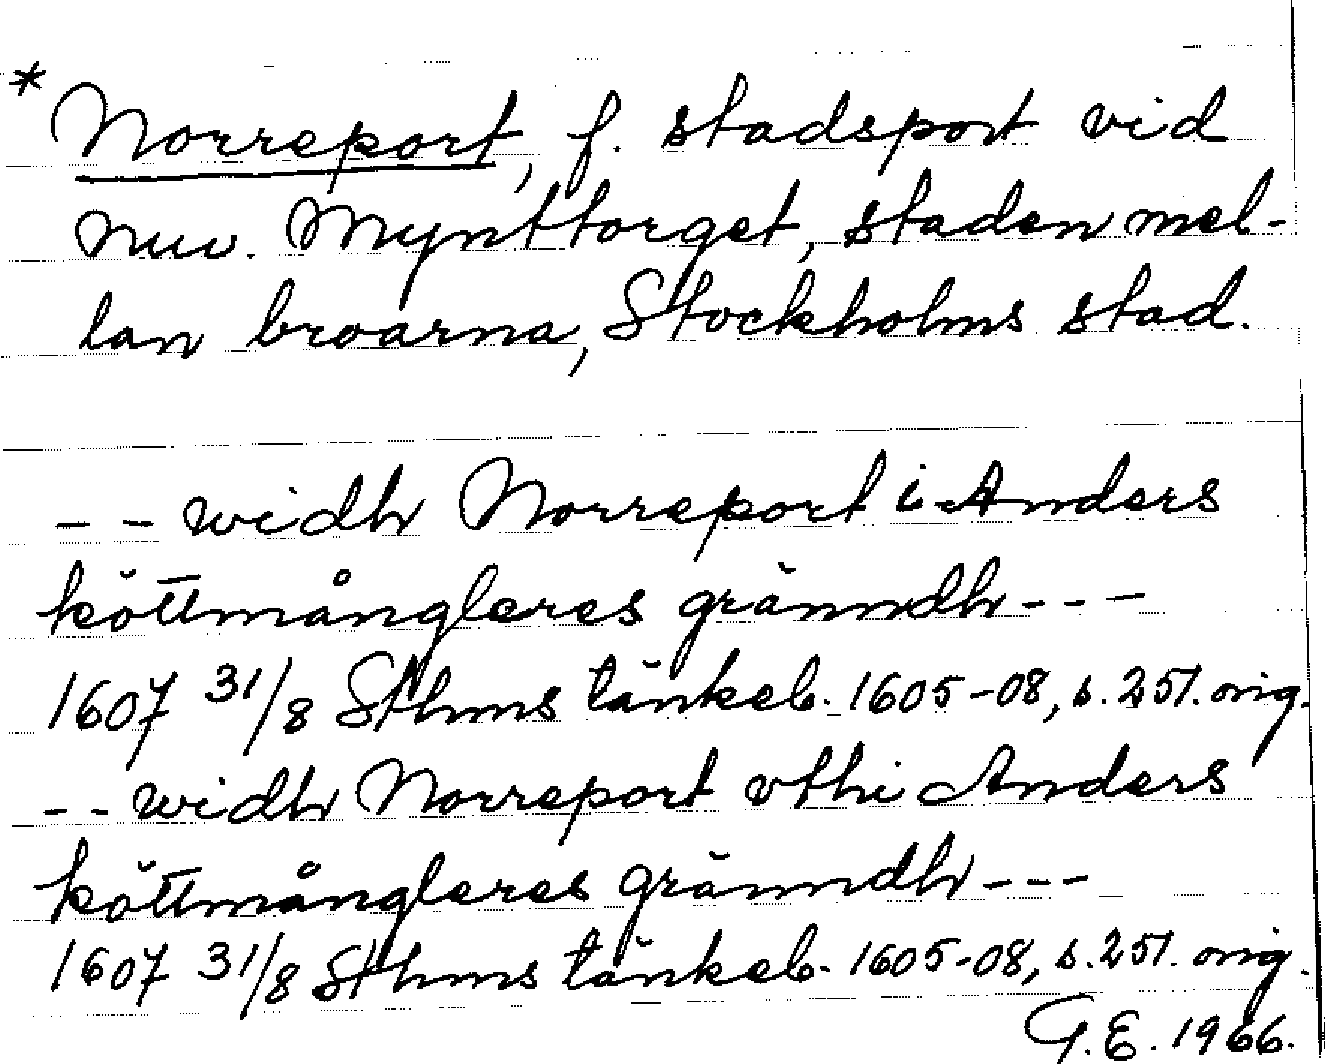 * Norreport, f. stadsport vid
nuv. Mynttorget, staden mel-
lan broarna, Stockholms stad.
-- widh Norreport i Anders
köttmångleres gränndh ---
1607 31/8 Sthms tänkeb. 1605-08, s. 251. orig.
-- widh Norreport vthi Anders
köttmångleres gränndh ---
1607 31/8 Sthms tänkeb. 1605-08, s. 251. orig.
G.E. 1966.